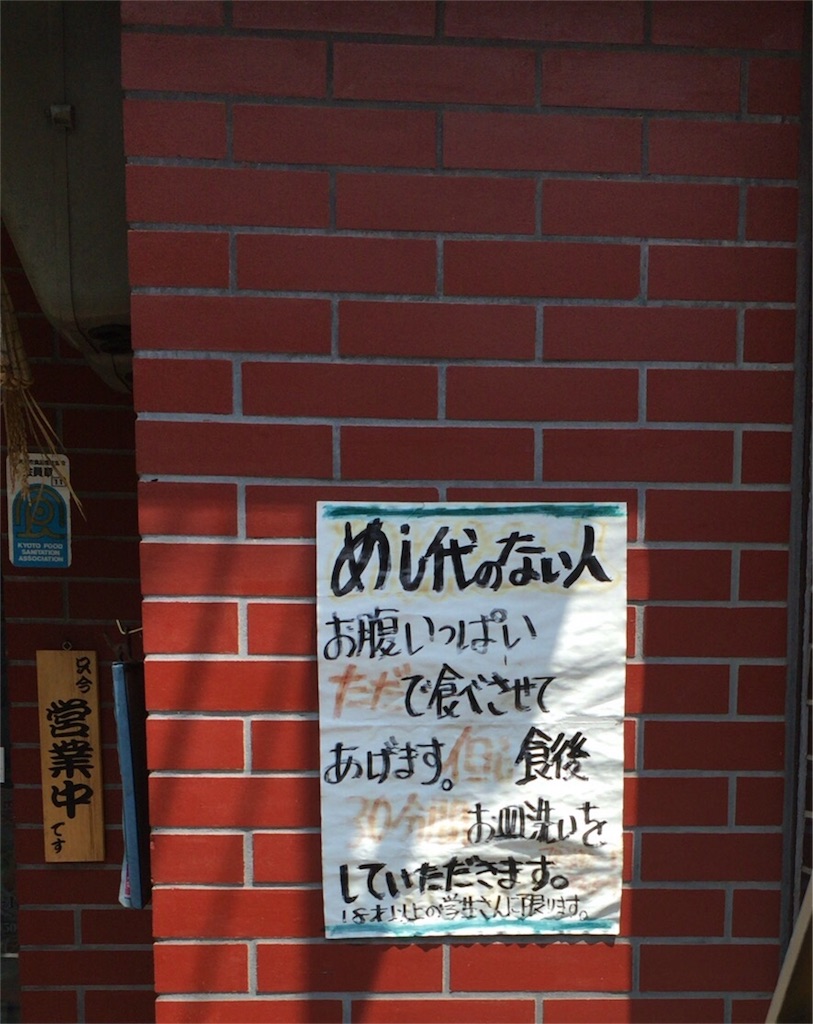 めし代のない人
お腹いっぱい
ただで食べさせて
あげます。但し食後
30分間お皿洗いを
していただきます。
18才以上の学生さんに限ります。
只今
営業中
です
11
KYOTO FOOD
SANITATION
ASSOCIATION